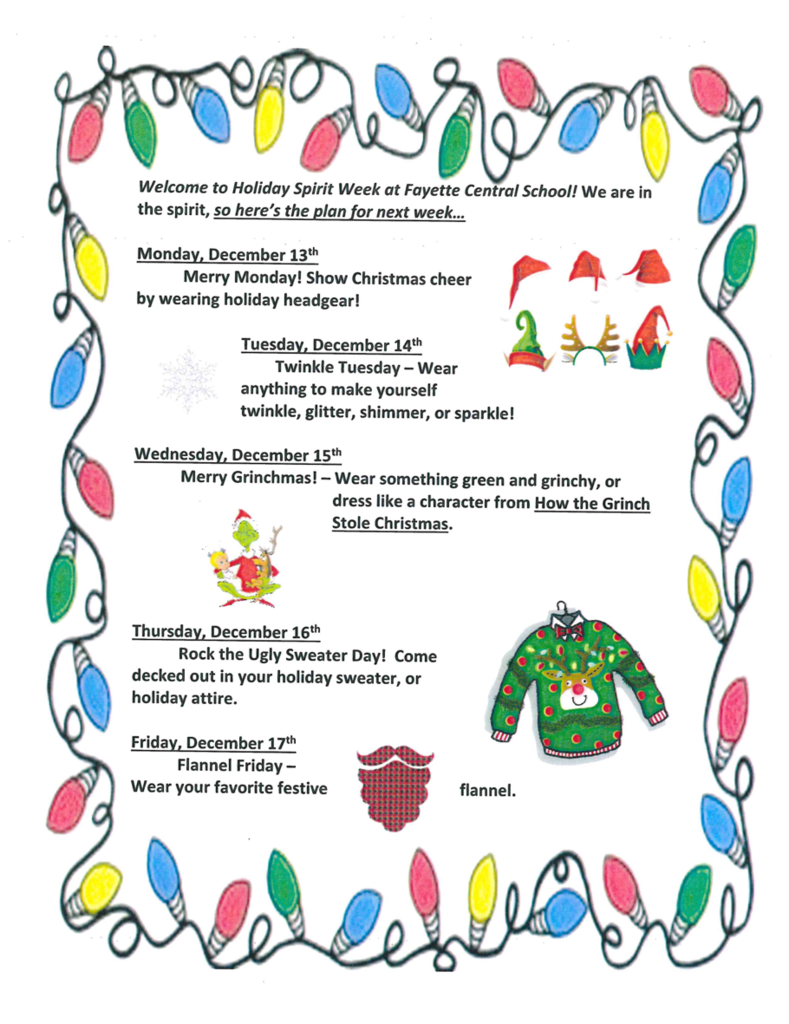 Welcome to Holiday Spirit Week at Fayette Central School! We are in
the spirit, so here's the plan for next week...
Monday, December 13th
Merry Monday! Show Christmas cheer
by wearing holiday headgear!
Tuesday, December 14th
Twinkle Tuesday – Wear
anything to make yourself
twinkle, glitter, shimmer, or sparkle!
Wednesday, December 15th
Merry Grinchmas! – Wear something green and grinchy, or
dress like a character from How the Grinch
Stole Christmas.
Thursday, December 16th
Rock the Ugly Sweater Day! Come
decked out in your holiday sweater, or
holiday attire.
Friday, December 17th
Flannel Friday –
Wear your favorite festive flannel.